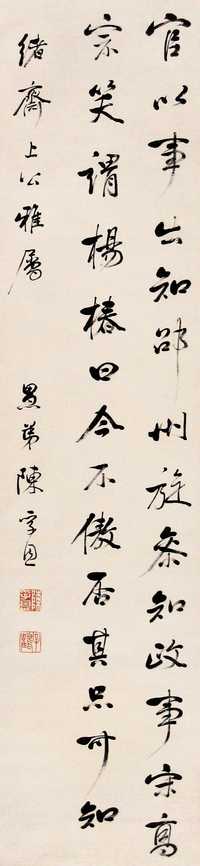 官以事亡知邵州旋參知政事宋高
宗笑謂楊椿曰今不傲否其忠可知
緒齋上公雅屬
愚弟陳孚恩